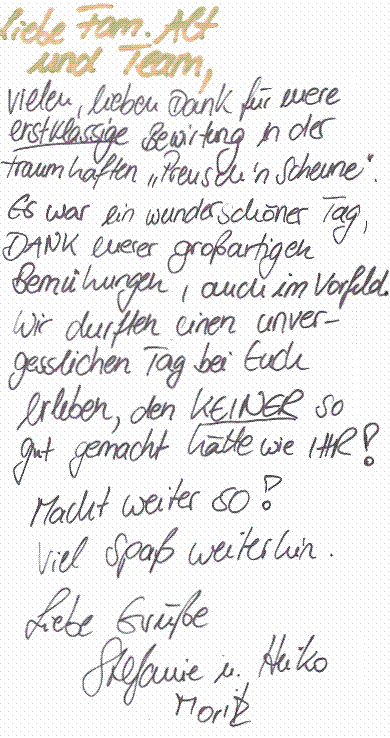 Liebe Fam. Alt
und Team,
vielen, lieben Dank für euere
erstklassige Bewirtung in der
traumhaften „Preusch'n Scheune“.
Es war ein wunderschöner Tag,
DANK euerer großartigen
Bemühungen, auch im Vorfeld.
Wir durften einen unver-
gesslichen Tag bei Euch
erleben, den KEINER so
gut gemacht hätte wie IHR!
Macht weiter so!
Viel Spaß weiterhin.
Liebe Grüße
Stefanie u. Heiko
Moritz